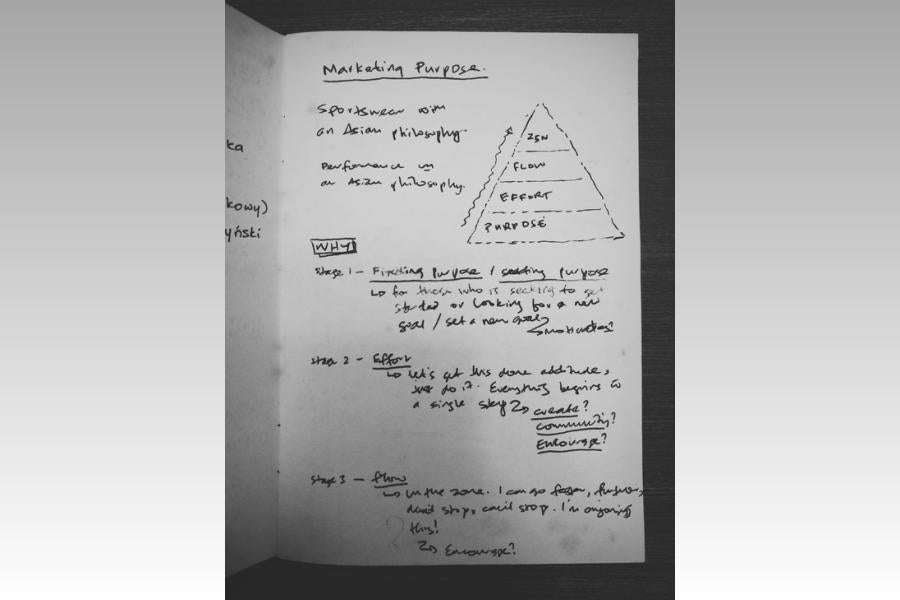 Marketing Purpose.
Sportswear with
an Asian philosophy.
Performance in
an Asian philosophy.
ZEN
FLOW
EFFORT
PURPOSE
WHY
Stage 1 - Finding purpose / seeking purpose
↳ for those who is seeking to get
started or looking for a new
goal / set a new goal
motivation?
Stage 2 - Effort
↳ Let's get this done attitude,
just do it. Everything begins in
a single step
create?
community?
Encourage?
Stage 3 - flow
↳ in the zone. I can go faster, further,
don't stop, can't stop. I'm enjoying
this!
Encourage?
ka
kowy)
yński